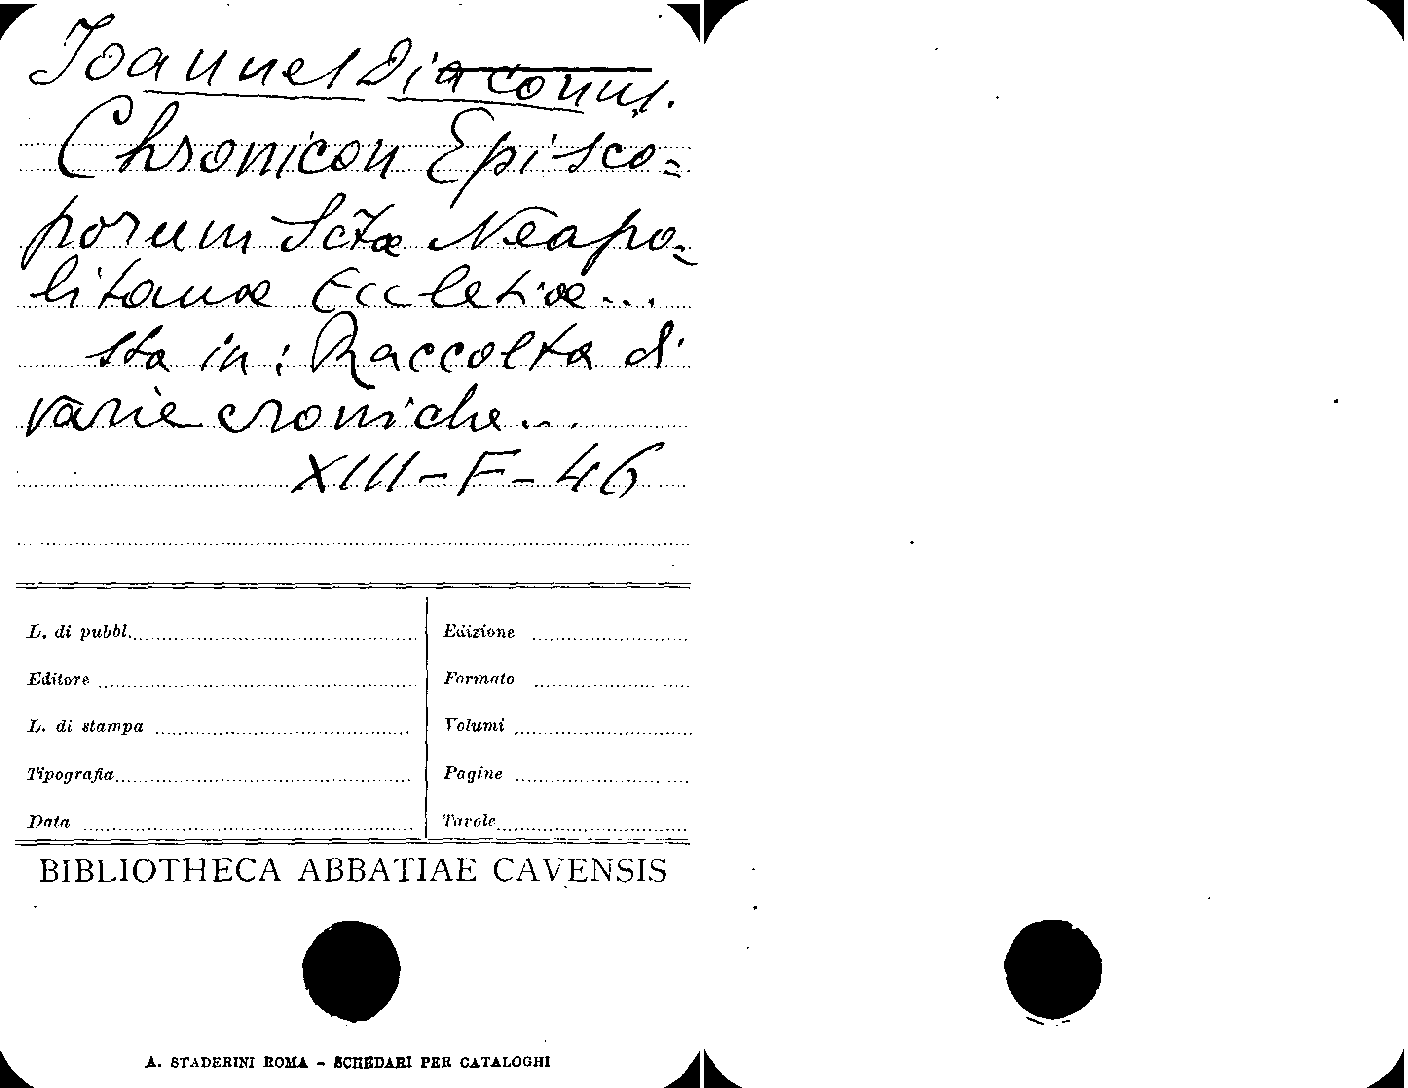 Joannes Diaconus.
Chronicon Episco=
porum Sctæ Neapo=
litanæ Ecclesiæ...
sta in: Raccolta di
varie croniche...
XIII-F-46
L. di pubbl.
Edizione
Editore
Formato
L. di stampa
Volumi
Tipografia
Pagine
Data
Tavole
BIBLIOTHECA ABBATIAE CAVENSIS
A. STADERINI ROMA - SCHEDARI PER CATALOGHI